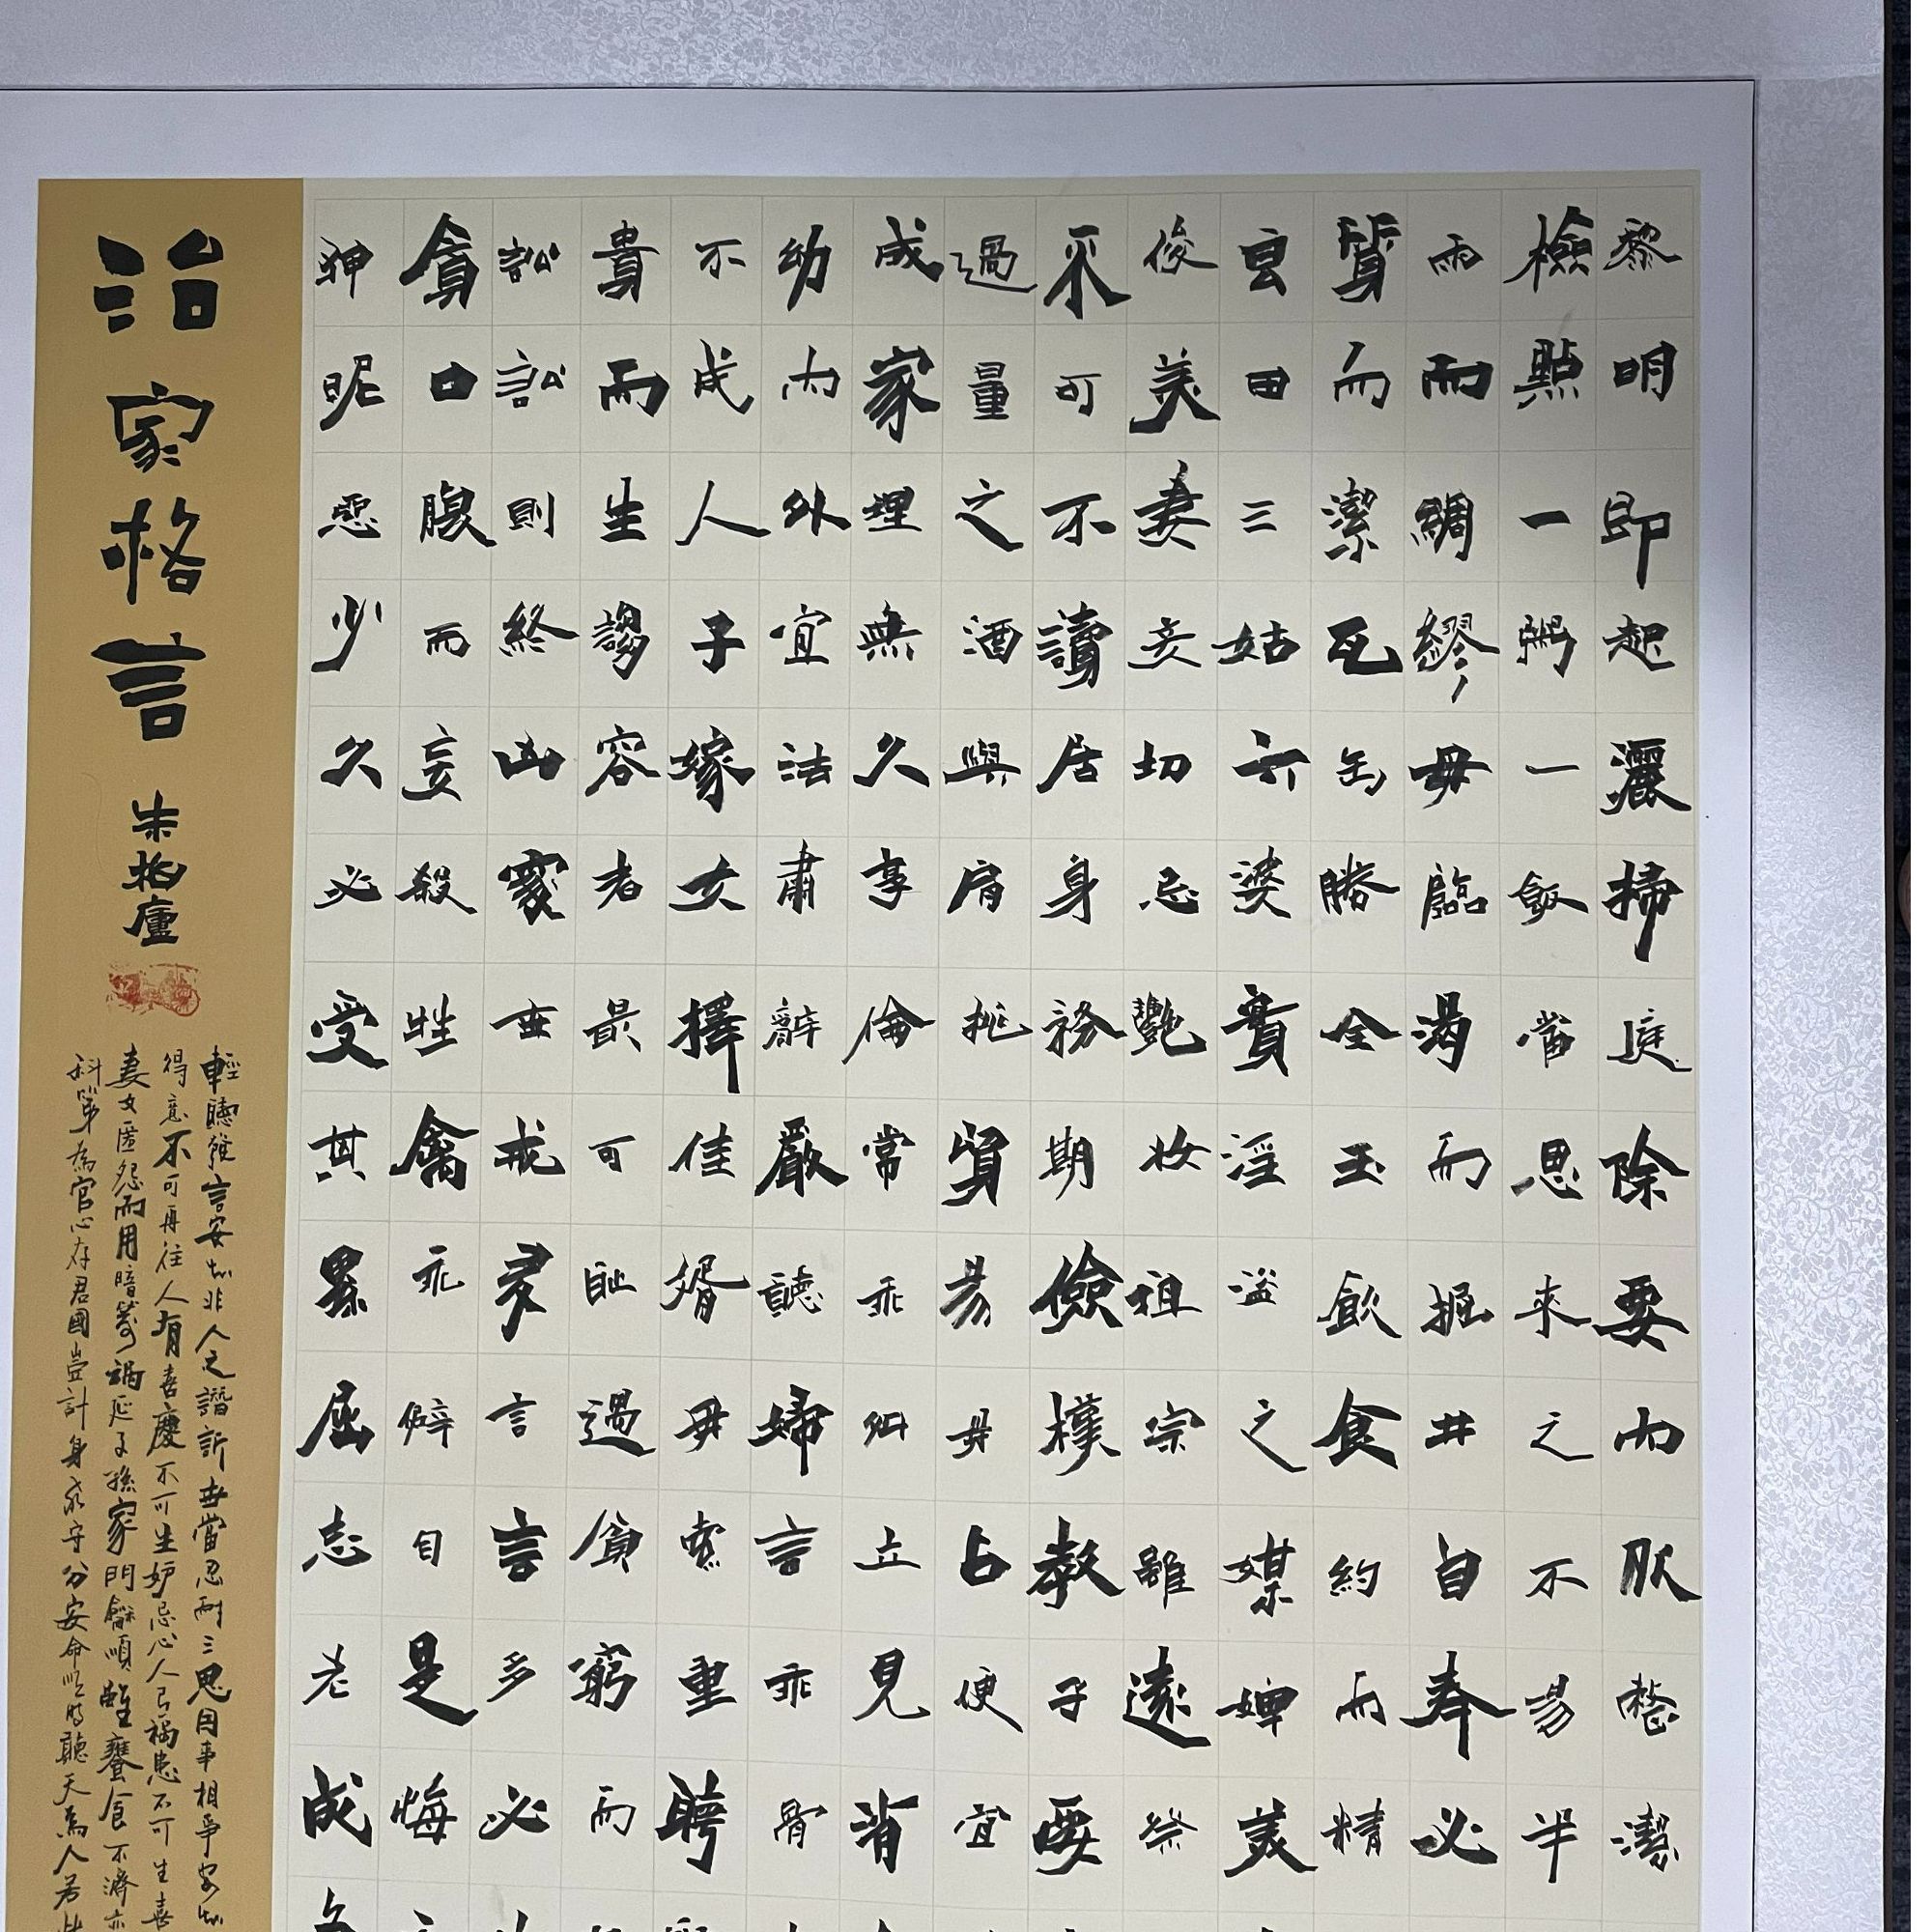 黎明即起灑掃庭除要内外整潔
檢點一粥一飯當思來之不易半
雨而綢繆毋臨渴而掘井自奉必
質而潔瓦缶勝金玉飲食約而精
良田三姑六婆實淫盗之媒婢美
俊美妻妾切忌艷妝祖宗雖遠祭
采可不讀居身務期儉樸教子要
過量之酒與肩挑貿易毋占便宜
成家理無久享倫常乖舛立見消
幼内外宜法肅辭嚴聽婦言乖骨
不成人子嫁女擇佳婿毋索重聘
貴而生諂容者最可恥遇貧窮而
訟訟則終凶處世戒多言言多必
貪口腹而妄殺牲禽乖僻自是悔
狎昵惡少久必受其累屈志老成
治家格言
朱柏廬
輕聽發言安知非人之譖訴當忍耐三思因事相爭安知
得意不可再往人有喜慶不可生妒忌心人有禍患不可生喜
妻女匿怨而用暗箭禍延子孫家門龢順雖饔食不濟亦
科第為官心存君國豈計身家守分安命順時聽天為人若此